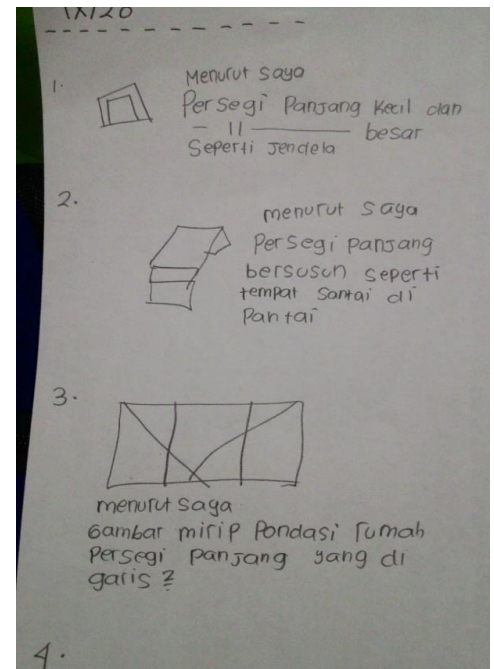 IX/20
1.
Menurut saya
Persegi Panjang Kecil dan
— 11 ——— besar
Seperti Jendela
2.
menurut saya
Persegi panjang
bersusun seperti
tempat santai di
Pantai
3.
menurut saya
Gambar mirip Pondasi rumah
Persegi panjang yang di
garis ?
4.